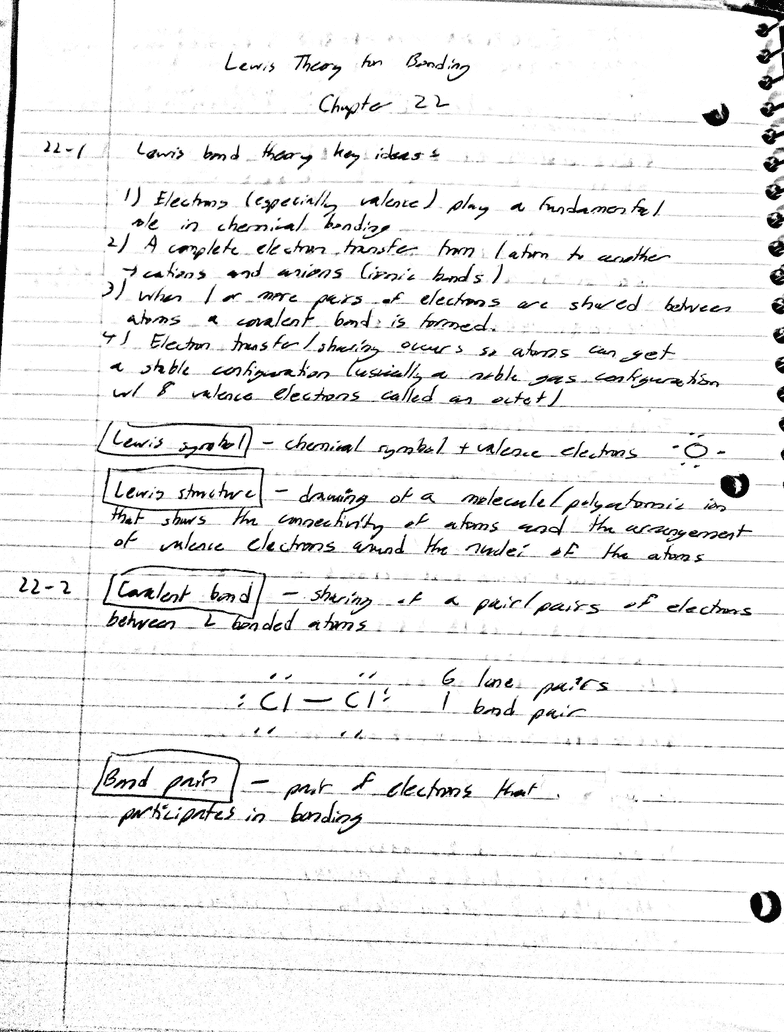 Lewis Theory for Bonding
Chapter 22
22-1 Lewis bond theory key ideas:
1) Electrons (especially valence) play a fundamental
role in chemical bonding
2) A complete electron transfer from 1 atom to another
→ cations and anions (ionic bonds)
3) when 1 or more pairs of electrons are shared between
atoms a covalent bond is formed.
4) Electron transfer/sharing occurs so atoms can get
a stable configuration (usually a noble gas configuration
w/ 8 valence electrons called an octet)
Lewis symbol - chemical symbol + valence electrons ·Ö·
Lewis structure - drawing of a molecule/polyatomic ion
that shows the connectivity of atoms and the arrangement
of valence electrons around the nuclei of the atoms
22-2 Covalent bond - sharing of a pair/pairs of electrons
between 2 bonded atoms
:Cl — Cl: 6 lone pairs
1 bond pair
Bond pair - pair of electrons that
participates in bonding